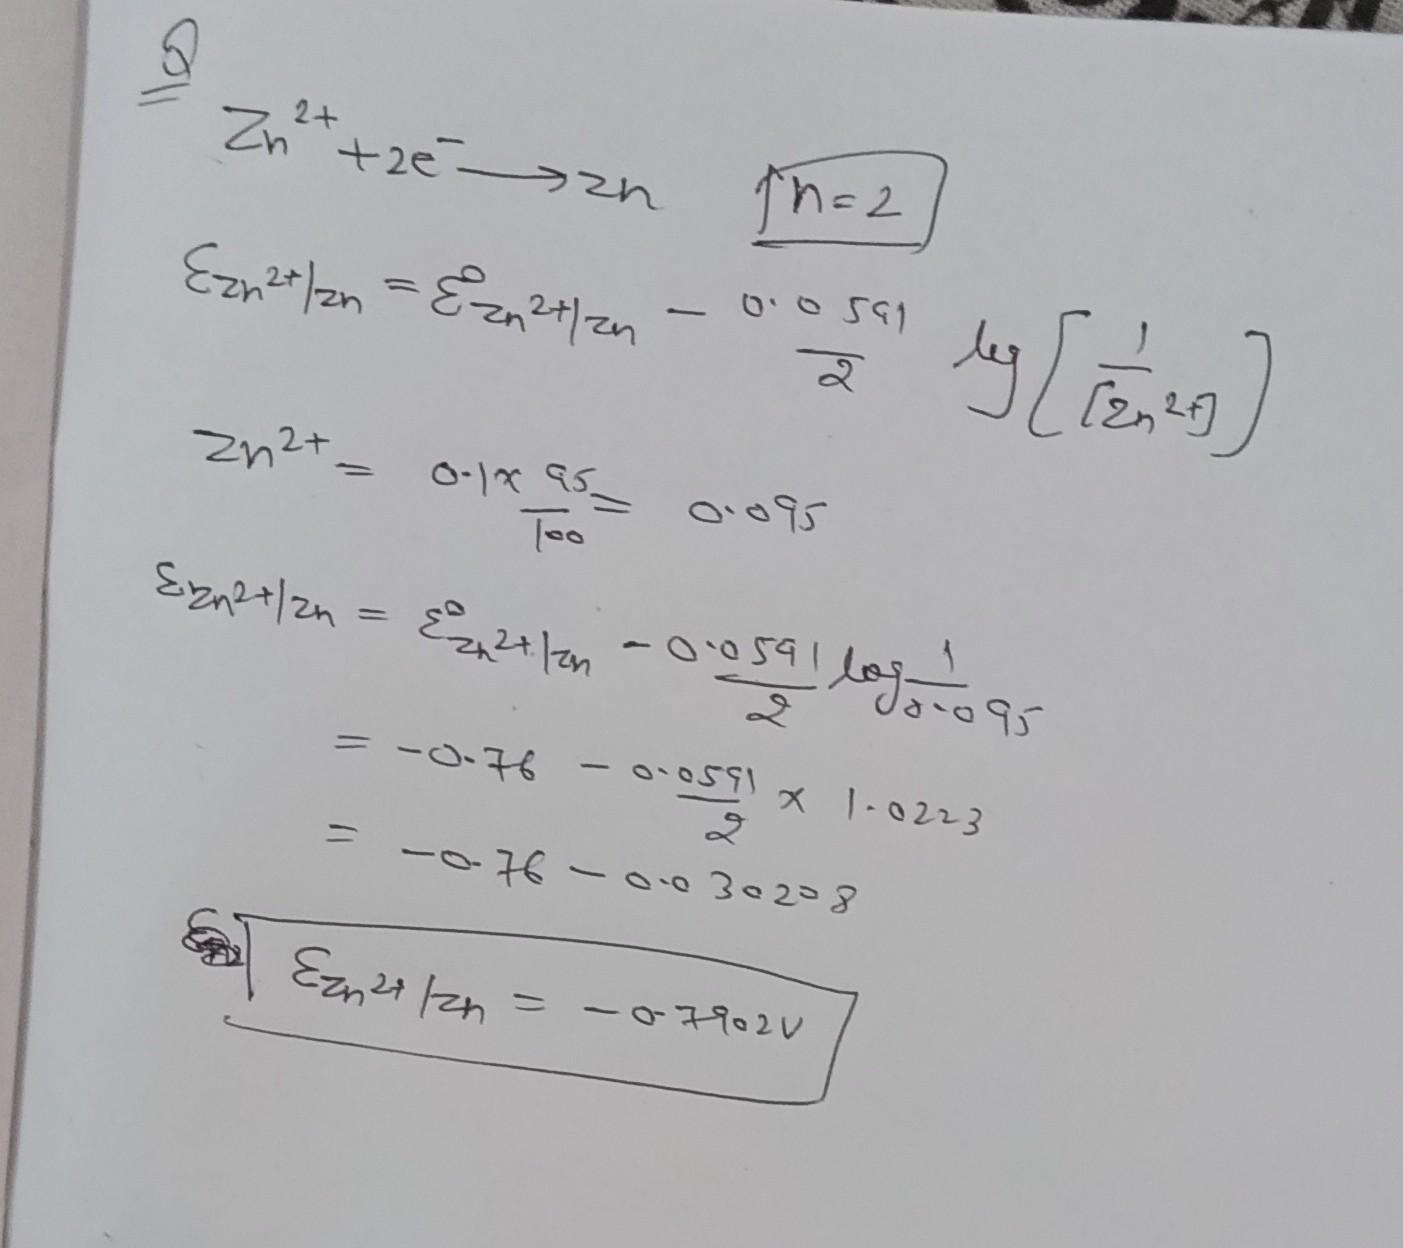 Q
Zn²⁺ + 2e⁻ ⟶ Zn n=2
Ɛzn²⁺/zn = Ɛ⁰zn²⁺/zn − 0.0591/2 log [1/[Zn²⁺]]
Zn²⁺ = 0.1 × 95/100 = 0.095
Ɛzn²⁺/zn = Ɛ⁰zn²⁺/zn − 0.0591/2 log 1/0.095
= −0.76 − 0.0591/2 × 1.0223
= −0.76 − 0.030208
Ɛzn²⁺/zn = −0.7902V